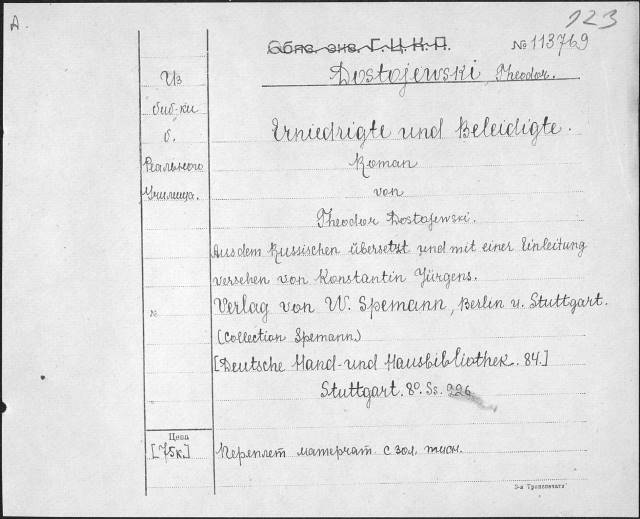 А.
123
Обяз. экз. Г.Ц.К.П.
№ 113769
Dostojewski, Theodor.
Из
биб-ки
б.
Реального
Училища.
Erniedrigte und Beleidigte.
Roman
von
Theodor Dostojewski.
Aus dem Russischen übersetzt und mit einer Einleitung
versehen von Konstantin Jürgens.
Verlag von W. Spemann, Berlin u. Stuttgart.
(Collection Spemann)
№
[Deutsche Hand- und Hausbibliothek. 84.]
Stuttgart. 8°. Ss. 226
Цена
[75к.]
Переплет матерчат. с зол. тисн.
3-я Трансвечать